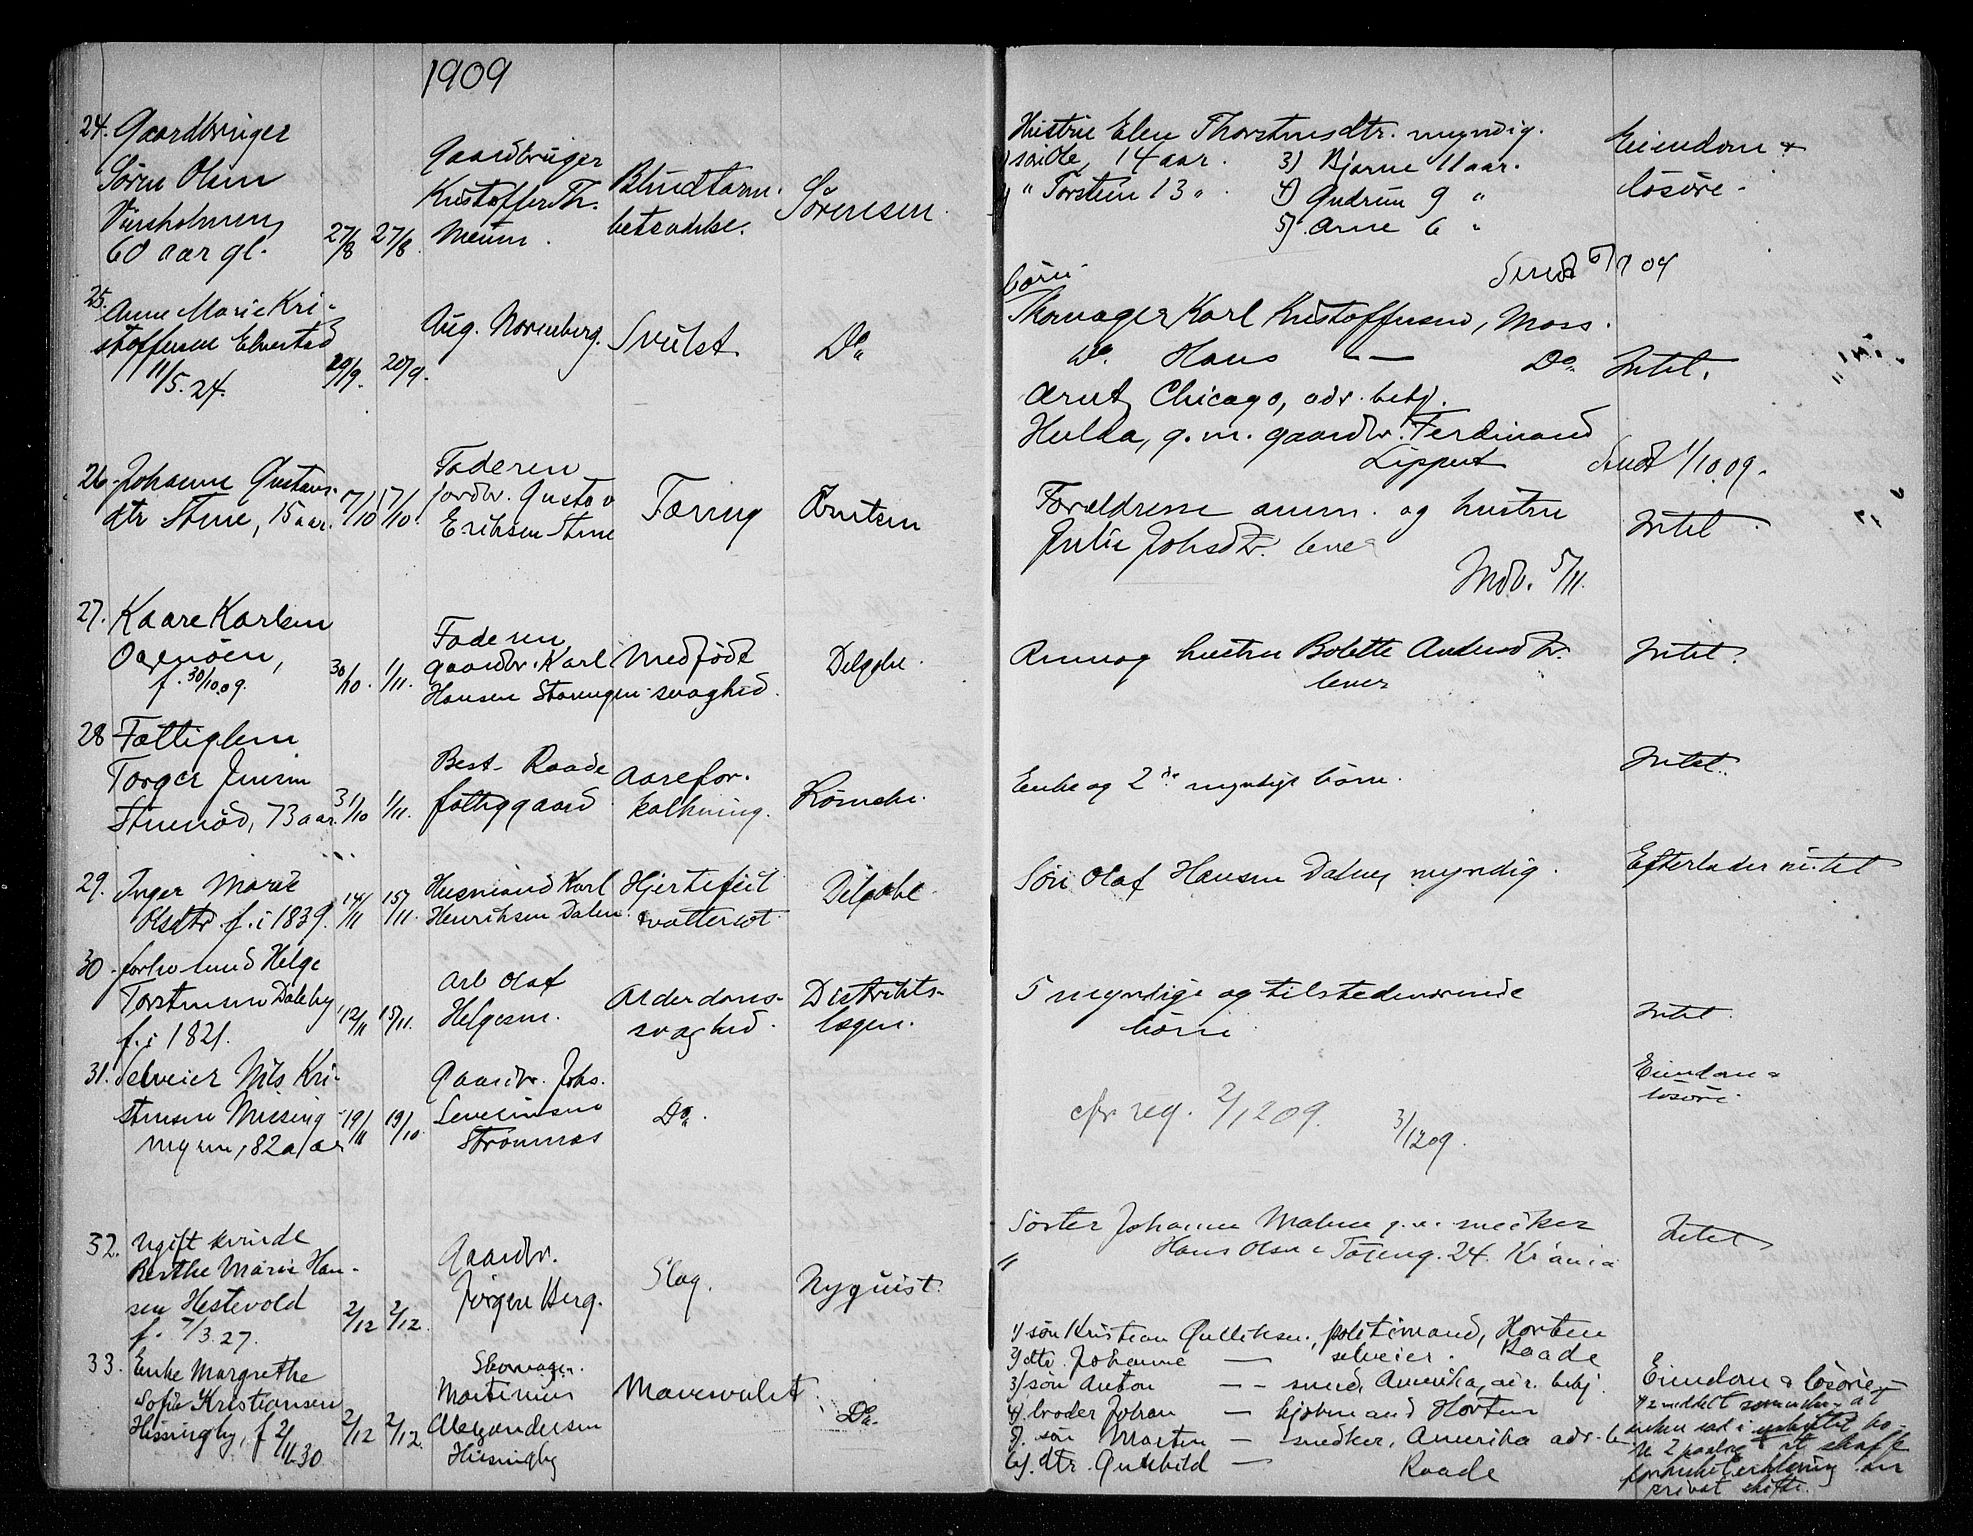 1909
24. Gaardbruger
Sören Olsen
60 aar gl. 27/8 27/8
Gaardbruger
Kristoffer Th.
Blindtarm-
betændelse.
Sörensen.
Hustru Elen Thorstensdtr. myndig.
14 aar. 3) Bjarne 11 aar.
" Torstein 13 " 4) Gudrun 9 "
5) Arne 6 "
Eiendom &
lösöre.
Sendt
25. Anne Marie Kri-
stoffersen Elvestad
11/5.24. 20/9. 20/9.
Aug. Norenberg.
Svulst
Do.
börn
Karl Kristoffersen, Moss.
Do. Hans — — Do.
Arnt, Chicago, adr. bekj.
Hulda, g.m. gaardbr. Ferdinand
Lippert
Intet.
Sendt 1/10.09.
26. Johanne Gustavs-
dtr Stene, 15 aar.
17/10 17/10.
Faderen
jordbr. Gustav
Eriksen Stene
Tæring
Knutsen
Forældrene anm. og hustru
Julie Johsdtr. lever
Intet
Indb. 5/11.
27. Kaare Karlsen
f. 30/10.09.
30/10. 1/11.
Faderen
gaardbr. Karl
Hansen Storengen
Medfödt
svaghed.
Delphi.
Anm og hustru Bolette Andersdtr.
lever
Intet.
28 Fattiglem
Torger Jensen
Stenröd, 73 aar
31/10 1/11.
Best. Raade
fattiggaard
Aarefor-
kalkning.
Enke og 2de myndige börn.
Intet.
29. Inger Marie
Olsdtr. f. i 1839.
14/11 15/11.
Husmand Karl
Henriksen Dalen
Hjertefeil
vattersot
Sön Olaf Hansen Dalen, myndig.
Efterlader intet
30. forh. mand Helge
Torstensen Daleby
f. i 1821.
12/11 15/11.
Arb Olaf
Helgesen.
Alderdoms-
svaghed.
Distrikts-
lægen.
5 myndige og tilstedeværende
börn
Intet.
31. Selveier Nils Kri-
stensen Missing
myren, 82 aar
19/11 19/10.
Gaardbr. Johs.
Severinsen
Strömnæs
Do.
cfr reg. 2/12 09. 3/12 09.
Eiendom &
lösöre.
32. Ugift kvinde
Berthe Marie Han-
sen Hestevold
f. 7/3.27.
2/12 2/12.
Gaardbr.
Jörgen Berg.
Slag.
Nyquist.
Söster Johanne Malm g.m. snedker
Hans Olsen Töieng. 24. Kr.ania
Intet
33. Enke Margrethe
Sofie Kristiansen
Hissingby, f 2/11.30
2/12 2/12.
Martinius
Alexandersen
Hissingby
Mavesvulst
Do.
1) sön Kristian Gulliksen, politimand, Horten
2) dtr. Johanne — selveier. Raade
3) sön Anton — — smed, Amerika, adr. bekj.
4) broder Johan — Horten
5) sön Morten — snedker, Amerika adr. b
6) dtr. Gunhild — Raade
Eiendom & lösöre
enken sad i uskiftet bo-
privat skifte.